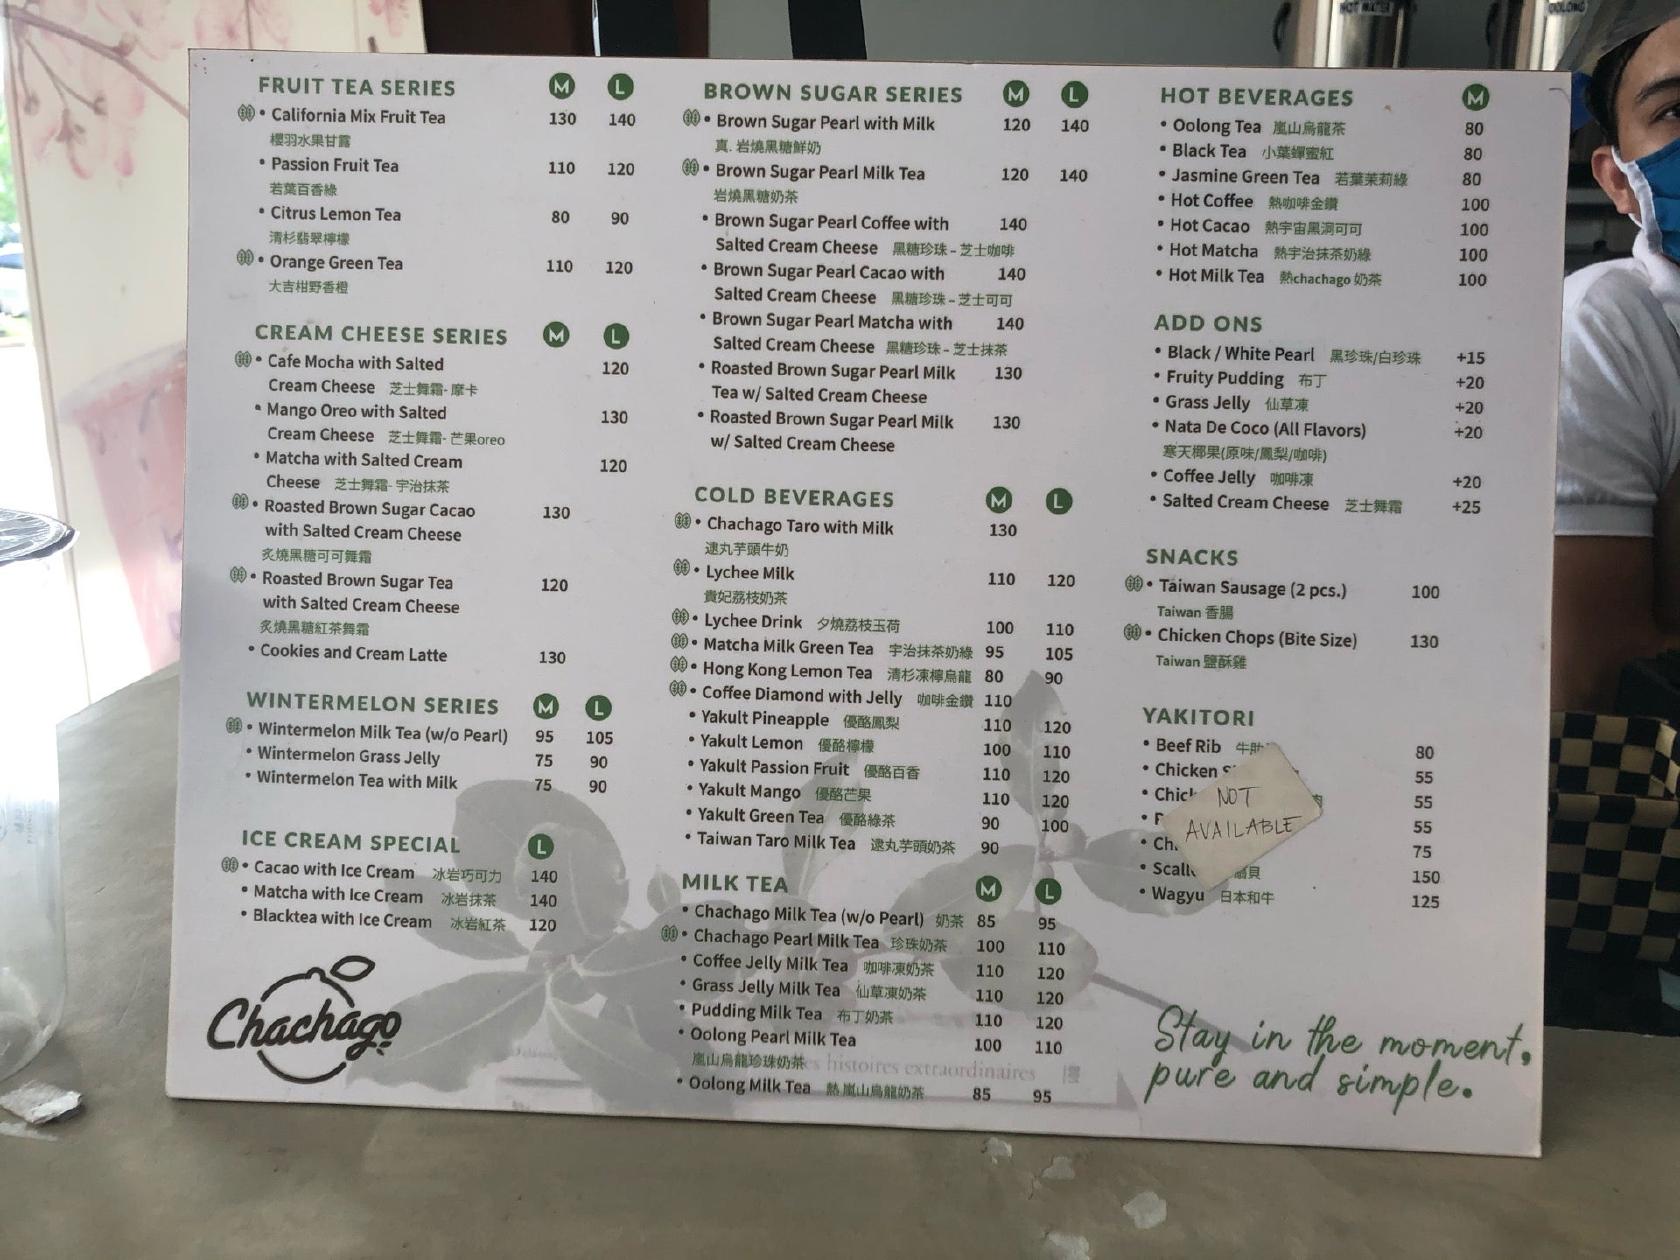 HOT WATER
OOLONG
FRUIT TEA SERIES M L
• California Mix Fruit Tea 130 140
櫻羽水果甘露
• Passion Fruit Tea 110 120
若葉百香綠
• Citrus Lemon Tea 80 90
清杉翡翠檸檬
• Orange Green Tea 110 120
大吉柑野香橙
CREAM CHEESE SERIES M L
• Cafe Mocha with Salted 120
Cream Cheese 芝士舞霜-摩卡
• Mango Oreo with Salted 130
Cream Cheese 芝士舞霜-芒果oreo
• Matcha with Salted Cream 120
Cheese 芝士舞霜-宇治抹茶
• Roasted Brown Sugar Cacao 130
with Salted Cream Cheese
炙燒黑糖可可舞霜
• Roasted Brown Sugar Tea 120
with Salted Cream Cheese
炙燒黑糖紅茶舞霜
• Cookies and Cream Latte 130
WINTERMELON SERIES M L
• Wintermelon Milk Tea (w/o Pearl) 95 105
• Wintermelon Grass Jelly 75 90
• Wintermelon Tea with Milk 75 90
ICE CREAM SPECIAL L
• Cacao with Ice Cream 冰岩巧可力 140
• Matcha with Ice Cream 冰岩抹茶 140
• Blacktea with Ice Cream 冰岩紅茶 120
Chachago
BROWN SUGAR SERIES M L
• Brown Sugar Pearl with Milk 120 140
真. 岩燒黑糖鮮奶
• Brown Sugar Pearl Milk Tea 120 140
岩燒黑糖奶茶
• Brown Sugar Pearl Coffee with 140
Salted Cream Cheese 黑糖珍珠-芝士咖啡
• Brown Sugar Pearl Cacao with 140
Salted Cream Cheese 黑糖珍珠-芝士可可
• Brown Sugar Pearl Matcha with 140
Salted Cream Cheese 黑糖珍珠-芝士抹茶
• Roasted Brown Sugar Pearl Milk 130
Tea w/ Salted Cream Cheese
• Roasted Brown Sugar Pearl Milk 130
w/ Salted Cream Cheese
COLD BEVERAGES M L
• Chachago Taro with Milk 130
逮丸芋頭牛奶
• Lychee Milk 110 120
貴妃荔枝奶茶
• Lychee Drink 夕燒荔枝玉荷 100 110
• Matcha Milk Green Tea 宇治抹茶奶綠 95 105
• Hong Kong Lemon Tea 清杉凍檸烏龍 80 90
• Coffee Diamond with Jelly 咖啡金鑽 110
• Yakult Pineapple 優酪鳳梨 110 120
• Yakult Lemon 優酪檸檬 100 110
• Yakult Passion Fruit 優酪百香 110 120
• Yakult Mango 優酪芒果 110 120
• Yakult Green Tea 優酪綠茶 90 100
• Taiwan Taro Milk Tea 逮丸芋頭奶茶 90
MILK TEA M L
• Chachago Milk Tea (w/o Pearl) 奶茶 85 95
• Chachago Pearl Milk Tea 珍珠奶茶 100 110
• Coffee Jelly Milk Tea 咖啡凍奶茶 110 120
• Grass Jelly Milk Tea 仙草凍奶茶 110 120
• Pudding Milk Tea 布丁奶茶 110 120
• Oolong Pearl Milk Tea 100 110
嵐山烏龍珍珠奶茶
histoires extraordinaires
• Oolong Milk Tea 熱嵐山烏龍奶茶 85 95
HOT BEVERAGES M
• Oolong Tea 嵐山烏龍茶 80
• Black Tea 小葉蟬蜜紅 80
• Jasmine Green Tea 若葉茉莉綠 80
• Hot Coffee 熱咖啡金鑽 100
• Hot Cacao 熱宇宙黑洞可可 100
• Hot Matcha 熱宇治抹茶奶綠 100
• Hot Milk Tea 熱chachago 奶茶 100
ADD ONS
• Black / White Pearl 黑珍珠/白珍珠 +15
• Fruity Pudding 布丁 +20
• Grass Jelly 仙草凍 +20
• Nata De Coco (All Flavors) +20
寒天椰果(原味/鳳梨/咖啡)
• Coffee Jelly 咖啡凍 +20
• Salted Cream Cheese 芝士舞霜 +25
SNACKS
• Taiwan Sausage (2 pcs.) 100
Taiwan 香腸
• Chicken Chops (Bite Size) 130
Taiwan 鹽酥雞
YAKITORI
• Beef Rib 80
• Chicken 55
• 55
• 55
• 75
• 150
• Wagyu 日本和牛 125
NOT
AVAILABLE
Stay in the moment,
pure and simple.